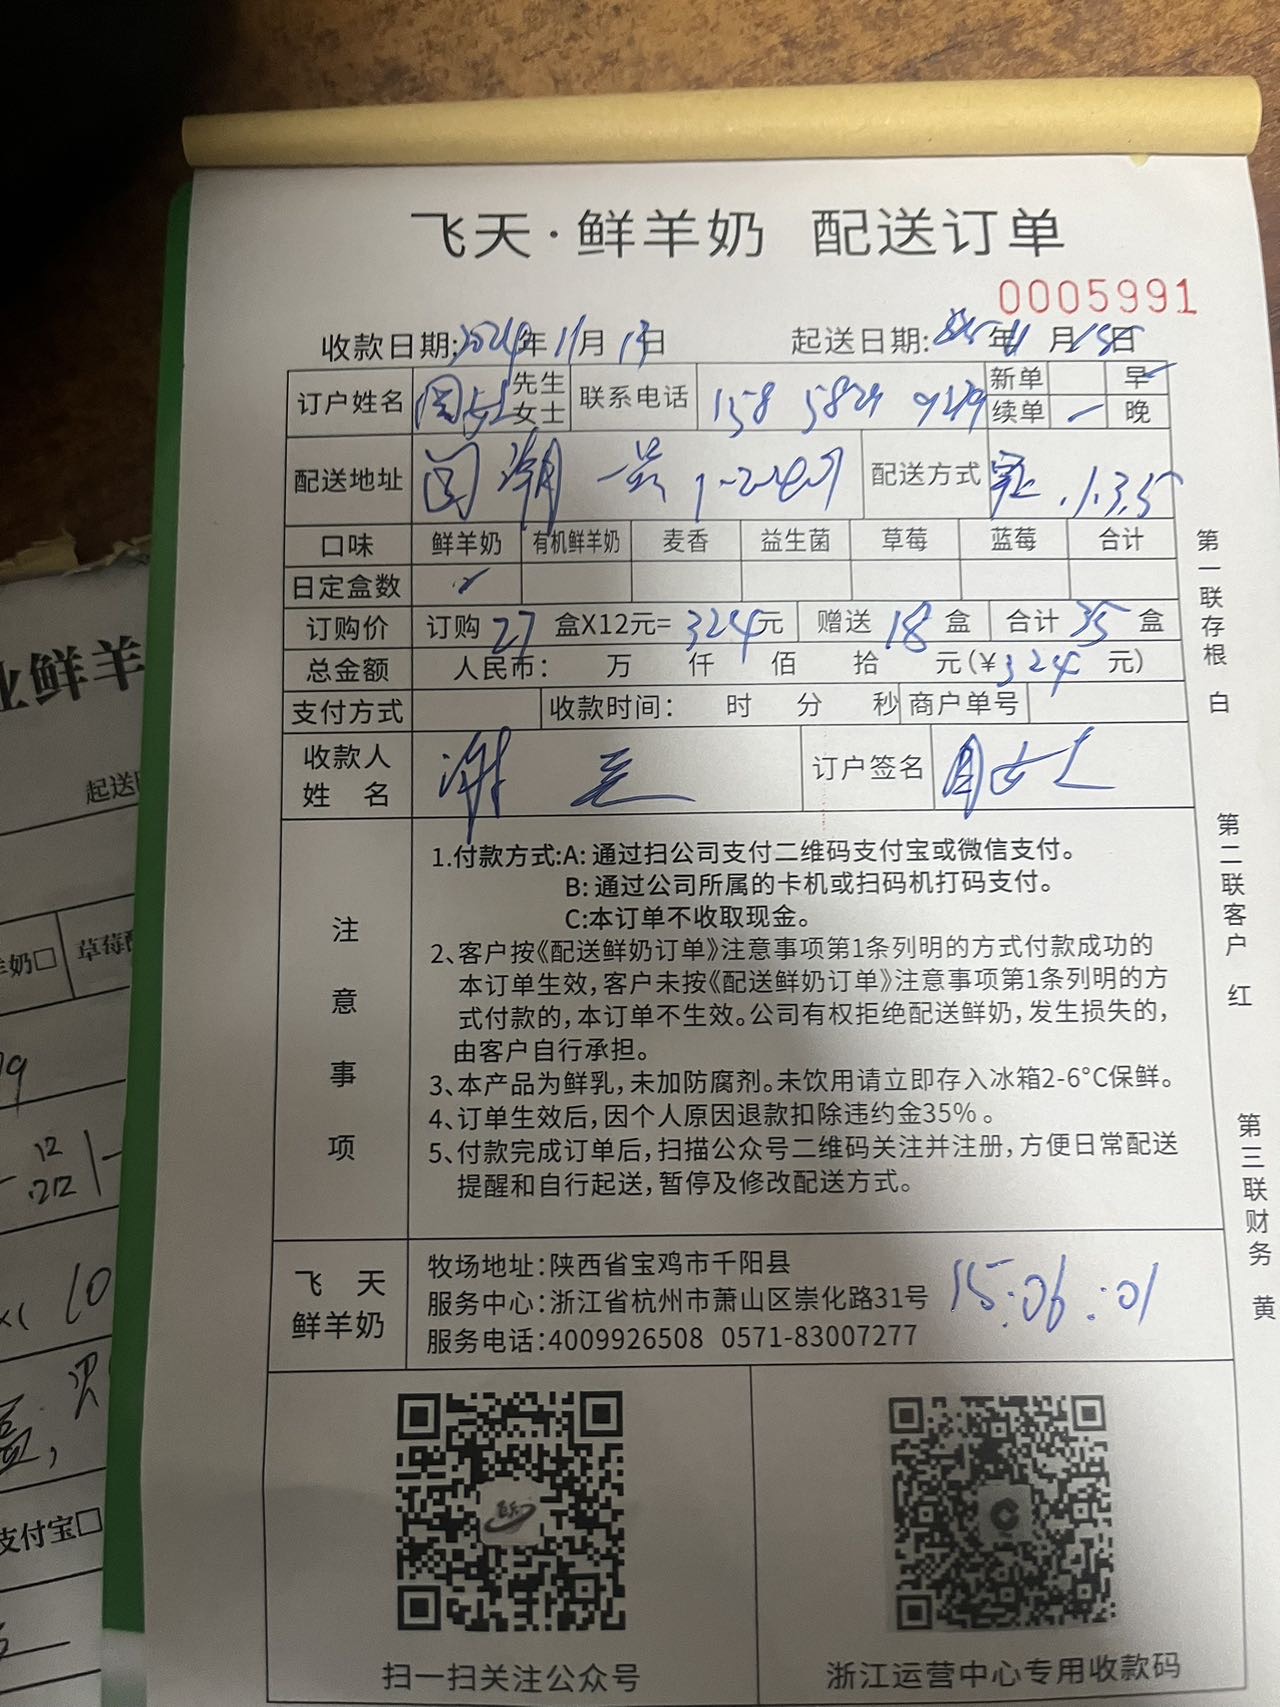 飞天·鲜羊奶 配送订单
0005991
收款日期:2024年11月13日 起送日期: 年11月15日
订户姓名 周女士 先生 女士 联系电话 158 5824 新单 早✓
续单 一 晚
配送地址 闻潮一号 配送方式 1.3.5
口味 鲜羊奶 有机鲜羊奶 麦香 益生菌 草莓 蓝莓 合计
日定盒数
订购价 订购 27 盒X12元= 324 元 赠送 18 盒 合计 35 盒
总金额 人民币: 万 仟 佰 拾 元(¥324 元)
支付方式 收款时间: 时 分 秒 商户单号
收款人姓 名 谢 订户签名 周女士
注意事项
1.付款方式:A:通过扫公司支付二维码支付宝或微信支付。
B:通过公司所属的卡机或扫码机打码支付。
C:本订单不收取现金。
2、客户按《配送鲜奶订单》注意事项第1条列明的方式付款成功的
本订单生效,客户未按《配送鲜奶订单》注意事项第1条列明的方
式付款的,本订单不生效。公司有权拒绝配送鲜奶,发生损失的,
由客户自行承担。
3、本产品为鲜乳,未加防腐剂。未饮用请立即存入冰箱2-6°C保鲜。
4、订单生效后,因个人原因退款扣除违约金35%。
5、付款完成订单后,扫描公众号二维码关注并注册,方便日常配送
提醒和自行起送,暂停及修改配送方式。
飞 天
鲜羊奶
牧场地址:陕西省宝鸡市千阳县
服务中心:浙江省杭州市萧山区崇化路31号
服务电话:4009926508 0571-83007277
15:06:01
扫一扫关注公众号
浙江运营中心专用收款码
第一联存根 白
第二联客户 红
第三联财务 黄
鲜羊
起送
羊奶□ 草莓
12
10
支付宝□